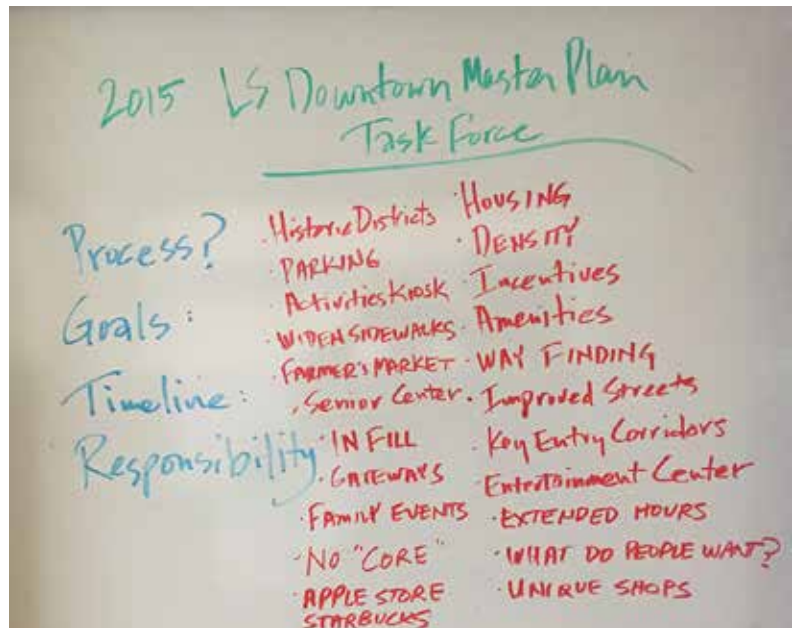 2015 LS Downtown Master Plan
Task Force
Process?
Goals:
Timeline:
Responsibility
· Historic Districts
· PARKING
· Activities Kiosk
· WIDEN SIDEWALKS
· FARMER'S MARKET
· Senior Center
· IN FILL
· GATEWAYS
· FAMILY EVENTS
· NO "CORE"
· APPLE STORE
STARBUCKS
· HOUSING
· DENSITY
· Incentives
· Amenities
· WAY FINDING
· Improved Streets
· Key Entry Corridors
· Entertainment Center
· EXTENDED HOURS
· WHAT DO PEOPLE WANT?
· UNIQUE SHOPS